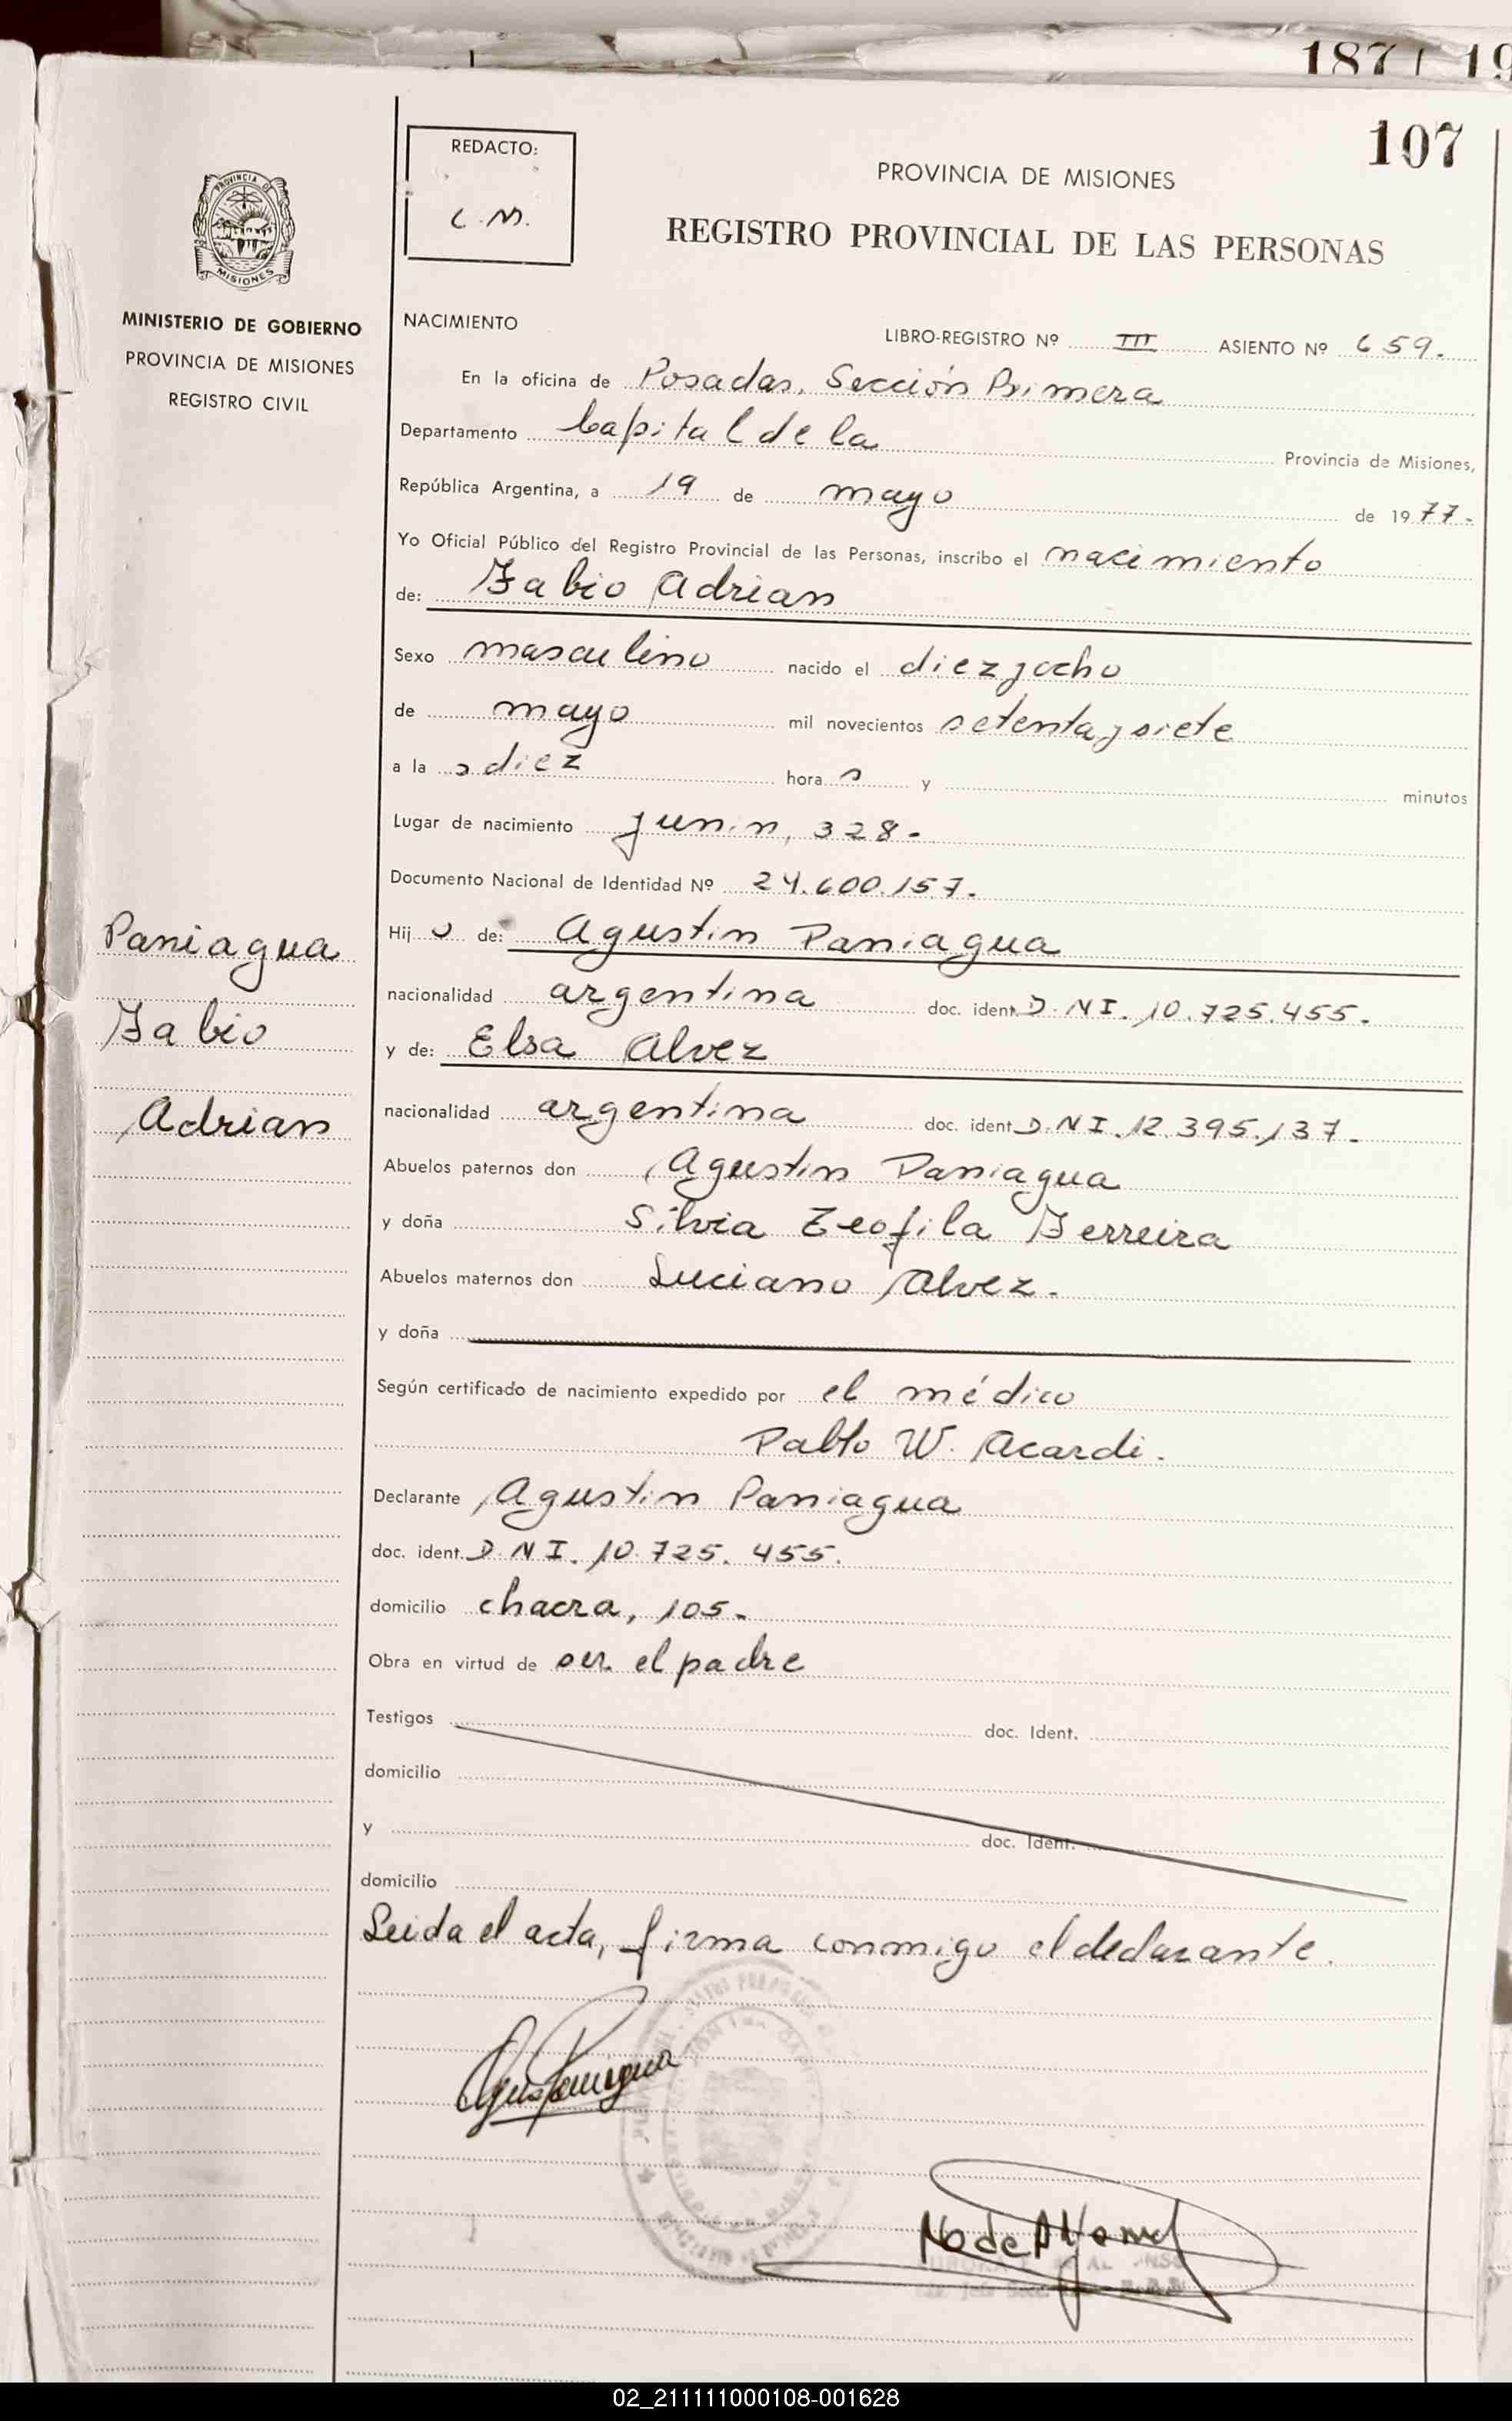 187 19
107
REDACTO:
C.M.
PROVINCIA DE MISIONES
REGISTRO PROVINCIAL DE LAS PERSONAS
PROVINCIA DE
MISIONES
MINISTERIO DE GOBIERNO
PROVINCIA DE MISIONES
REGISTRO CIVIL
NACIMIENTO
LIBRO-REGISTRO Nº III ASIENTO Nº 659.
En la oficina de Posadas, Sección Primera
Departamento Capital de la Provincia de Misiones,
República Argentina, a 19 de mayo de 1977.-
Yo Oficial Público del Registro Provincial de las Personas, inscribo el nacimiento
de: Fabio Adrian
Sexo masculino nacido el diez y ocho
de mayo mil novecientos setenta y siete
a la s diez hora s y minutos
Lugar de nacimiento Junin, 328.-
Documento Nacional de Identidad Nº 24.600.157.-
Hij o de: Agustin Paniagua
nacionalidad argentina doc. ident. D.N.I. 10.725.455.-
y de: Elsa Alvez
nacionalidad argentina doc. ident. D.N.I. 12.395.137.-
Abuelos paternos don Agustin Paniagua
y doña Silvia Teofila Ferreira
Abuelos maternos don Luciano Alvez.-
y doña
Según certificado de nacimiento expedido por el médico
Pablo W. Acardi.
Declarante Agustin Paniagua
doc. ident. D.N.I. 10.725.455.
domicilio chacra, 105.-
Obra en virtud de ser el padre
Testigos doc. Ident.
domicilio
y doc. Ident.
domicilio
Leida el acta, firma conmigo el declarante.
Paniagua
Fabio
Adrian
02_211111000108-001628